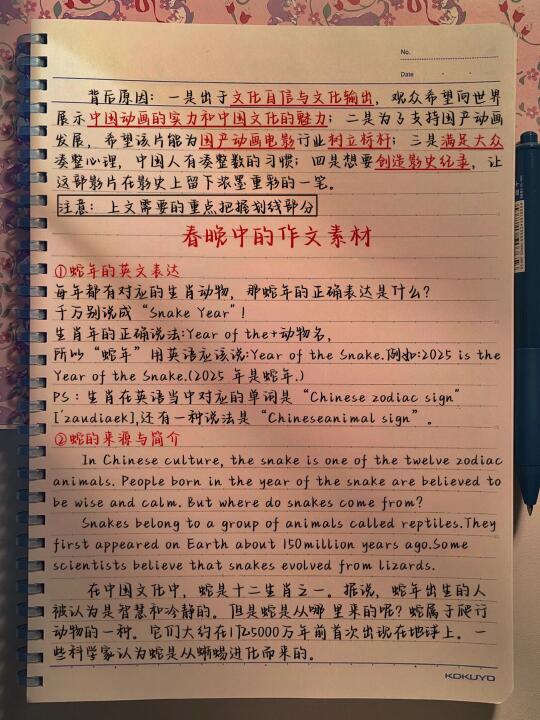 No.
Date
背后原因：一是出于文化自信与文化输出，观众希望向世界
展示中国动画的实力和中国文化的魅力；二是为了支持国产动画
发展，希望该片能为国产动画电影行业树立标杆；三是满足大众
凑整心理，中国人有凑整数的习惯；四是想要创造影史纪录，让
这部影片在影史上留下浓墨重彩的一笔。
注意：上文需要的重点把握划线部分
春晚中的作文素材
①蛇年的英文表达
每年都有对应的生肖动物，那蛇年的正确表达是什么？
千万别说成“Snake Year”！
生肖年的正确说法:Year of the+动物名，
所以“蛇年”用英语应该说:Year of the Snake.例如:2025 is the
Year of the Snake.(2025 年是蛇年.)
PS：生肖在英语当中对应的单词是“Chinese zodiac sign”
['zaudiaek],还有一种说法是“Chineseanimal sign”。
②蛇的来源与简介
In Chinese culture, the snake is one of the twelve zodiac
animals. People born in the year of the snake are believed to
be wise and calm. But where do snakes come from?
Snakes belong to a group of animals called reptiles.They
first appeared on Earth about 150million years ago.Some
scientists believe that snakes evolved from lizards.
在中国文化中，蛇是十二生肖之一。据说，蛇年出生的人
被认为是智慧和冷静的。但是蛇是从哪里来的呢？蛇属于爬行
动物的一种。它们大约在1亿5000万年前首次出现在地球上。一
些科学家认为蛇是从蜥蜴进化而来的。
KOKUYO